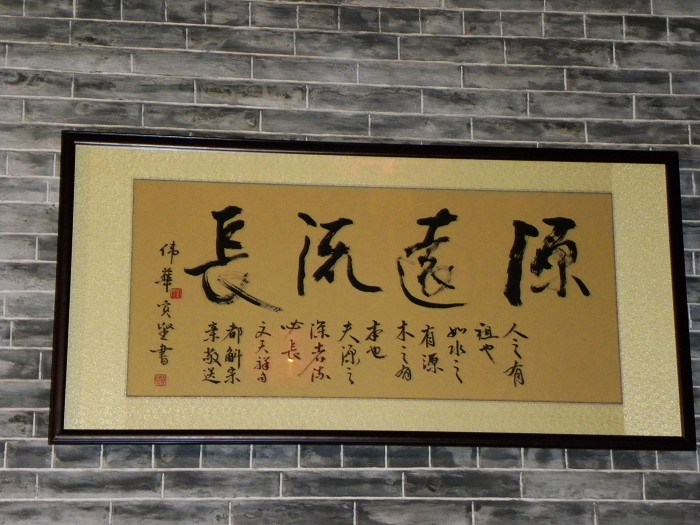 源遠流長
人之有
祖也
如水之
有源
木之有
本也
夫源之
深者流
必長
文天祥句
都斛宗
亲敬送
伟華
書